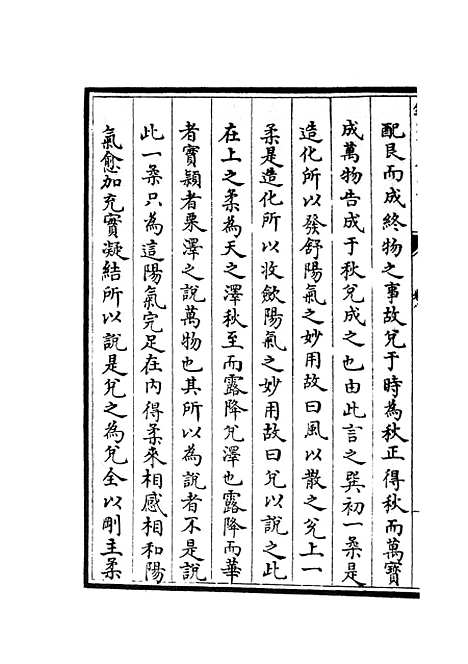 配艮而成終物之事故兌于時為秋正得秋而萬寶
成萬物告成于秋兌成之也由此言之巽初一柔是
造化所以發舒陽氣之妙用故曰風以散之兌上一
柔是造化所以收斂陽氣之妙用故曰兌以說之此
在上之柔為天之澤秋至而露降兌澤也露降而華
者實穎者栗澤之說萬物也其所以為說者不是說
此一柔只為這陽氣完足在內得柔來相感相和陽
氣愈加充實凝結所以說是兌之為兌全以剛主柔